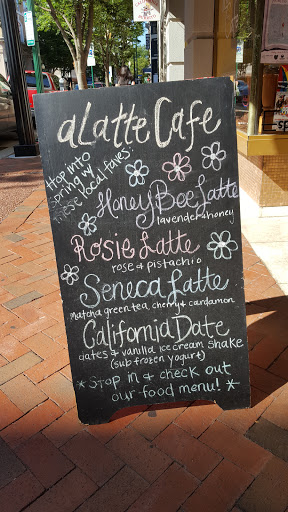 aLatte Cafe
Hop into
spring w/
these local faves:
Honey Bee Latte
lavender + honey
Rosie Latte
rose + pistachio
Seneca Latte
Matcha green tea, cherry + cardamon
California Date
dates + vanilla ice cream shake
(sub frozen yogurt)
*Stop in + check out
our food menu! *